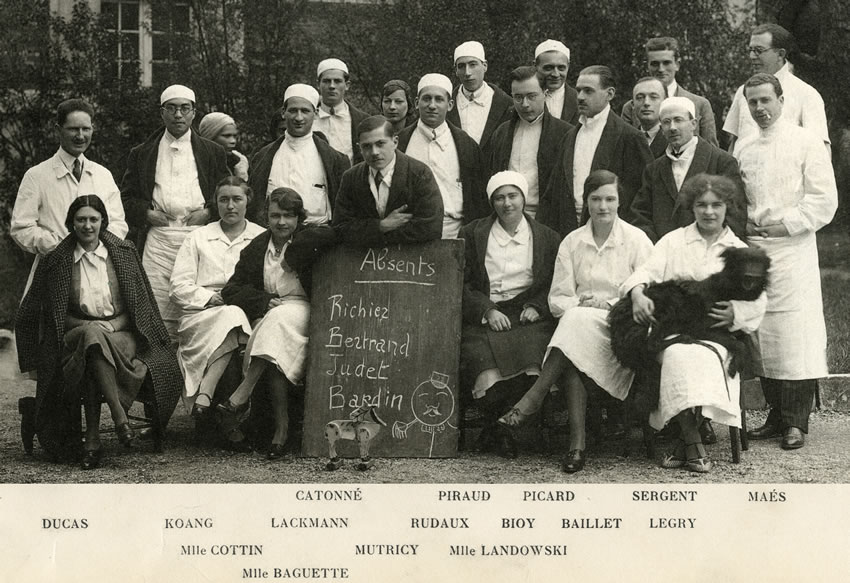 Absents
Richiez
Bertrand
Judet
Bardin
CATONNÉ PIRAUD PICARD SERGENT MAÉS
DUCAS KOANG LACKMANN RUDAUX BIOY BAILLET LEGRY
Mlle COTTIN MUTRICY Mlle LANDOWSKI
Mlle BAGUETTE